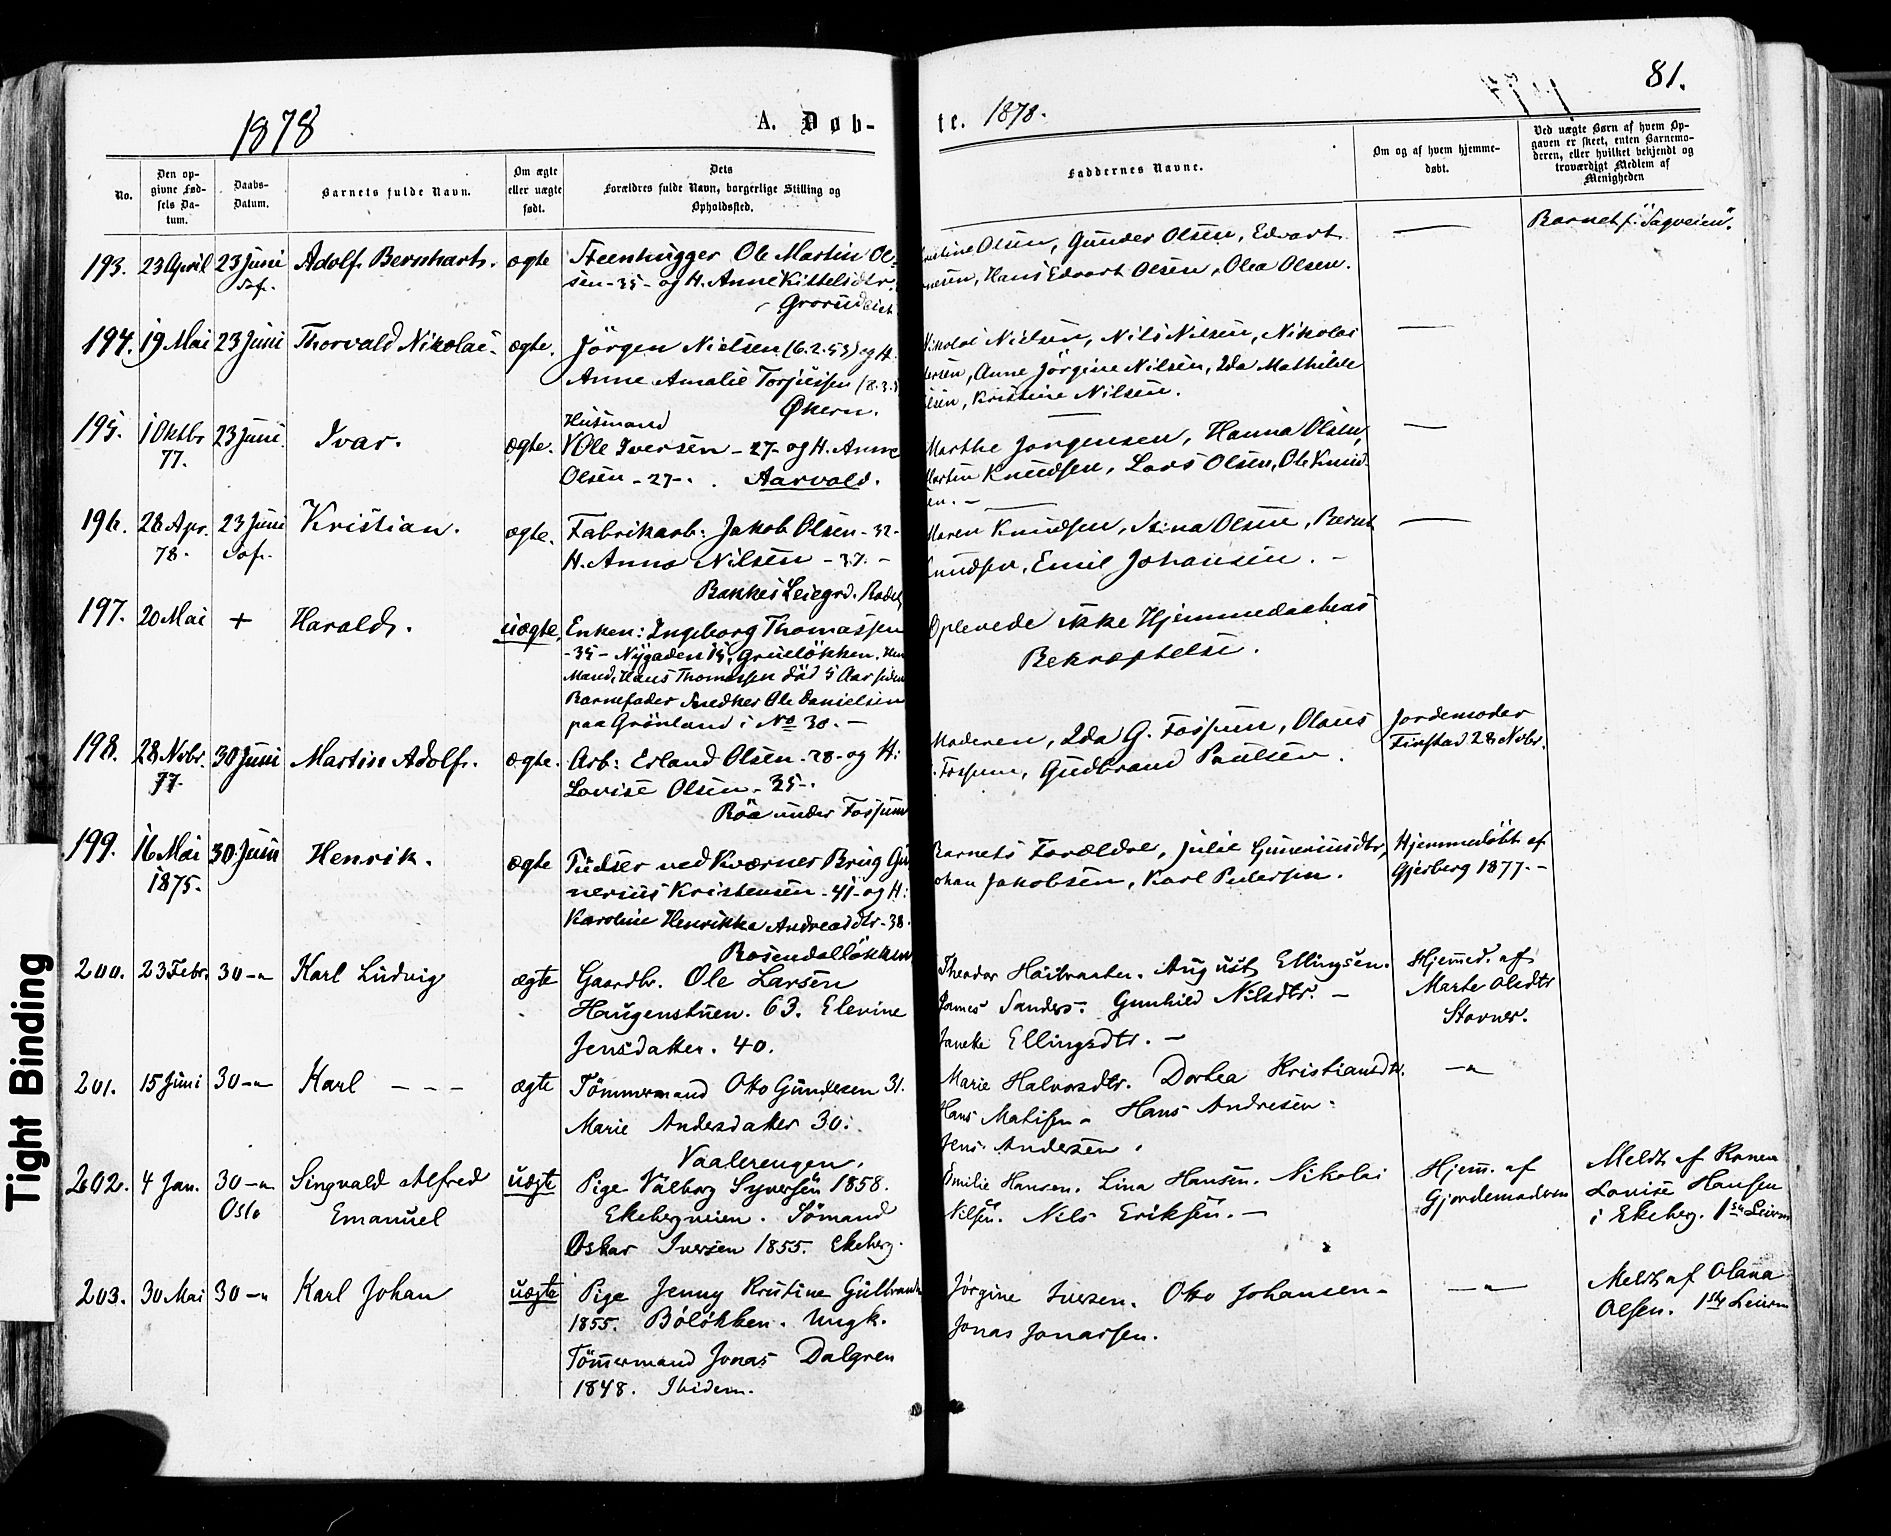 1878
A. Døb-
No.
Den op-
givne Fød-
sels Da-
tum.
Daabs-
Datum.
Barnets fulde Navn.
Om ægte
eller uægte
født.
Dets
Forældres fulde Navn, borgerlige Stilling og
Opholdssted.
193. 23 April 23 Juni Adolf Bernhart. ægte Steenhugger Ole Martin Ol-
Sof. sen -35- og H. Anne Kittelsdtr.
Grorud
194. 19 Mai 23 Juni Thorvald Nikolai. ægte. Jörgen Nielsen (6.2.53) og H.
Anne Amalie Torjusen (8.3.
Økern.
Husmand
195. 1 Oktbr 23 Juni Ivar. ægte. Ole Iversen -27- og H. Anne
77. Olsen -27-. Aarvold.
196. 28 Apr. 23 Juni Kristian. ægte. Fabrikarb: Jakob Olsen -32-
78. Sof. H. Anna Nilsen -37.-
Bankes Leiegrd. Rodel
197. 20 Mai + Harald. uægte. Enken: Ingeborg Thomassen
-35- Nygaden 15, Grueløkken. Hen
Mand, Hans Thomassen död 5 Aar siden
Barnefader Snedker Ole Danielsen
paa Grönland i No 30.-
198. 28 Novbr. 30 Juni Martin Adolf. ægte. Arb: Erland Olsen -28- og H:
77. Lovise Olsen -35-.
Röa under Fossum
199. 16 Mai 30 Juni Henrik. ægte Tudser ved Kværner Brug Gu
1875. nerius Kristensen -41- og H:
Karoline Henrikke Andreasdtr -38-
Rosendalløkken
200. 23 Febr. 30 -"- Karl Ludvig ægte Gaardbr. Ole Larsen
Haugenstuen. 63. Elevine
Jensdatter. 40.
201. 15 Juni 30 -"- Karl - - - ægte Tömmermand Otto Gundersen 31.
Marie Andersdatter 30.
Vaalerengen.
202. 4 Jan. 30 -"- Singvald Alfred uægte Pige Valborg Syversen 1858.
Oslo Emanuel Ekebergveien. Sömand
Oskar Iversen 1855. Ekeberg.
203. 30 Mai 30 -"- Karl Johan uægte Pige Jenny Kristine Gulbrands
1855. Böløkken. Ungk.
Tömmermand Jonas Dalgren
1848. Ibidem.
te. 1878.
81.
Faddernes Navne.
Om og af hvem hjemme-
døbt.
Ved uægte Børn af hvem Op-
gaven er skeet, enten Barnemo-
deren, eller hvilket bekjendt og
troværdigt Medlem af
Menigheden
ristine Olsen, Gunder Olsen, Edvart — Barnet f. "Sagveien".
nesen, Hans Edvart Olsen, Olea Olsen.
Nikolai Nielsen, Nils Nilsen, Nikolai —
dersen, Anne Jörgine Nilsen, Ida Mathilde
lsen, Kristine Nilsen.
Marthe Jorgensen, Hanna Olsen, —
Martin Knudsen, Lars Olsen, Ole Knud-
sen. -
Maren Knudsen, Stina Olsen, Bernt —
Knudsen, Emil Johansen. -
Oplevede ikke Hjemmedaabens
Bekræftelse.
Moderen, Ida G. Fossum, Olaus Jordemoder
. Fossum, Gudbrand Paulsen. Finstad 28 Novbr.
Barnets Forældre, Julie Guneriusdtr, Hjemmedøbt af
Johan Jakobsen, Karl Pedersen. Gjerberg 1877.-
Theodor Hoibraaten. August Ellingsen. Hjemmed. af
James Sanders. Gunhild Nilsdtr. - Marte Olsdtr
Janeke Ellingsdtr. - Stovner.
Marie Halvorsdtr. Dorhea Kristiansdtr. -"-
Hans Matisen - Hans Andresen -
Jens Andersen.
Emilie Hansen. Lina Hansen. Nikolai Hjem. af Meldt af Konen
Nilsen. Nils Eriksen. - Gjordemoderen Lovise Hansen
i Ekeberg. 1ste Leierm
Jørgine Iversen. Otto Johansen - -"- Meldt af Olava
Jonas Jonassen. Olsen. 1ste Leierm
Tight Binding